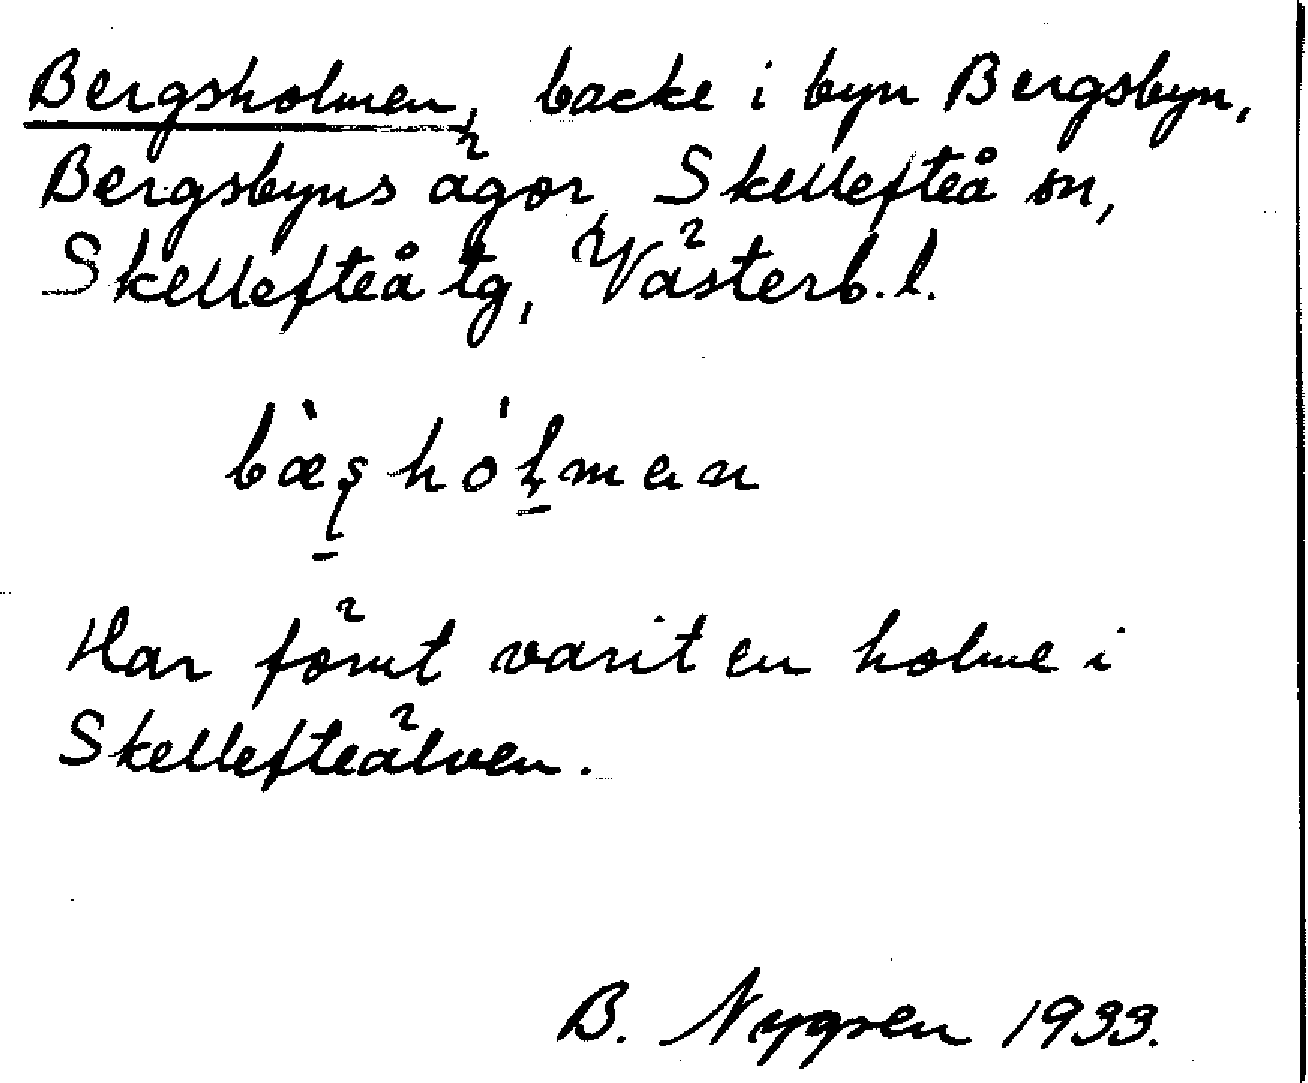 Bergsholmen, backe i byn Bergsbyn,
Bergsbyns ägor, Skellefteå sn,
Skellefteå tg, Västerb.l.
Har förut varit en holme i
Skellefteälven.
B. Nygren 1933.